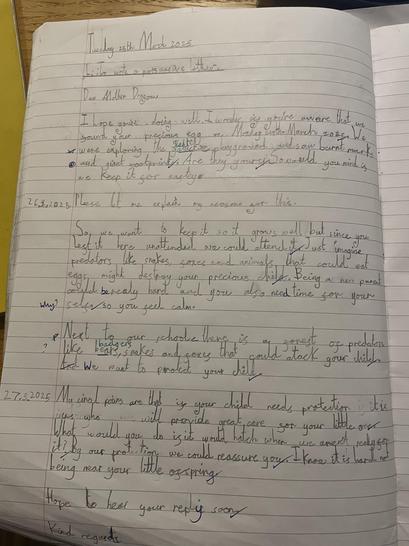 Tuesday 25th March 2025
to write a persuasive letter.
Dear Mother Dragon
I hope you're doing well. I wonder if you're aware that we
found your precious egg on Monday 24th March 2025. We
were exploring the playground and saw burnt marks
and giant footprints. Are they yours? Would you mind if
we keep it for
26.3.2025 Please let me explain my reasons for this.
So, we want to keep it so it grows well but since you
lest it here unattended we could attend it. Just imagine
predators like snakes, foxes and animals that could eat
egg, might destroy your precious child. Being a new parent
could be really hard and you also need time for your
Why? self so you feel calm.
Next to our school there is a forest of predators
? like badgers, snakes and foxes that could atack your child.
We want to protect your child.
27.3.2025 My final points are that if your child needs protection it is
us who will provide great care for your little one.
What would you do if it would hatch when we arent ready for
it? by our protection, we could reassure you. I know it is hard not
being near your little offspring.
Hope to hear your reply soon
Kind regards